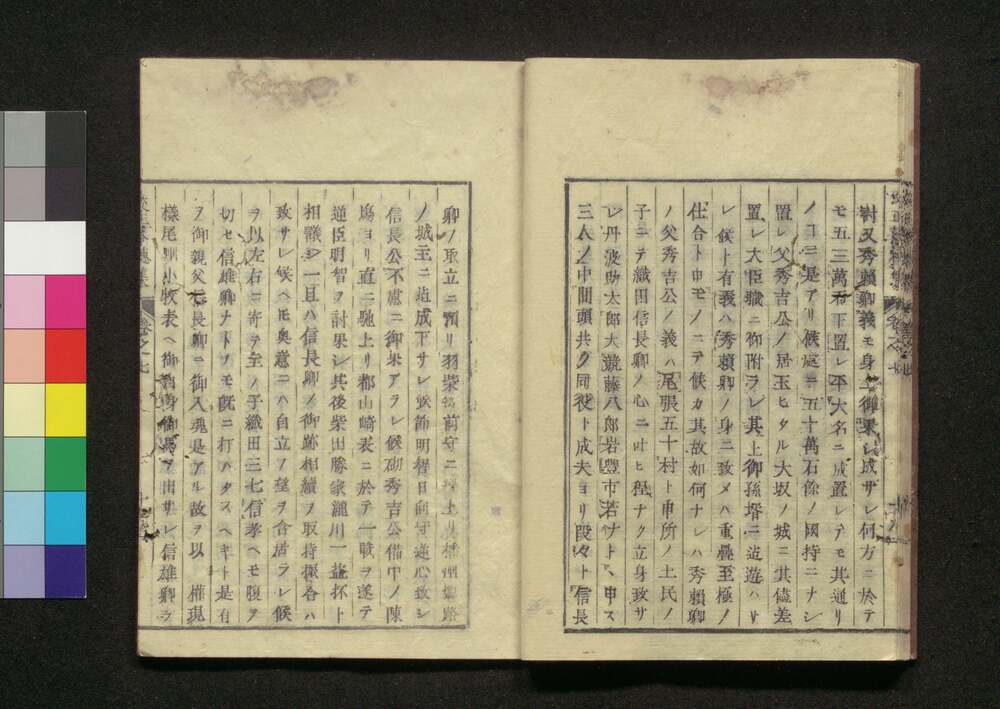 對又秀賴卿義モ身上御果シ成サレ何方ニ於テ
モ五三萬石下置レ平大名ニ成置レテモ其通リ
ノコニ是アリ候處ニ五十萬石餘ノ國持ニナシ
置レ父秀吉公ノ居玉ヒタル大坂ノ城ニ其儘差
置レ大臣職ニ御附ラレ其上御孫壻ニ迄遊ハサ
レ候ト有義ハ秀賴卿ノ身ニ致メハ重疊至極ノ
仕合ト申モノニテ候カ其故如何ナレハ秀賴卿
ノ父秀吉公ノ義ハ尾張五十村ト申所ノ土民ノ
子ニテ織田信長卿ノ心ニ叶ヒ程ナク立身致サ
レ丹波助太郎大競藤八郎岩豊市若ナト丶申ス
三人ノ中間頭共ク同役ト成夫ヨリ段々ト信長
卿ノ取立ニ預リ羽柴筑前守ニ経上リ播州姫路
ノ城主ニ迄成下サレシ處飾明智日向守逆心致シ
信長公不慮ニ御果アラレ候砌秀吉公備中ノ陳
塲ヨリ直ニ馳上リ都山崎表ニ於テ一戰ヲ遂テ
逆臣明智ヲ討果シ其後柴田勝家瀧川一益抔ト
相議シ一旦ハ信長卿ノ御跡相續ヲ取持振合ハ
致サレ候ヘ𪜈奥意ニハ自立ノ望ヲ含居ラレ候
ヲ以左右ニ寄テ至ノ子織田三七信孝ヘモ腹ヲ
切セ信雄卿ナトノモ既ニ打ハタスヘキト是有
ヲ御親父信長卿ニ御入魂是アル故ヲ以 權現
樣尾州小牧表ヘ御自身御馬ヲ出サレ信雄卿ヲ